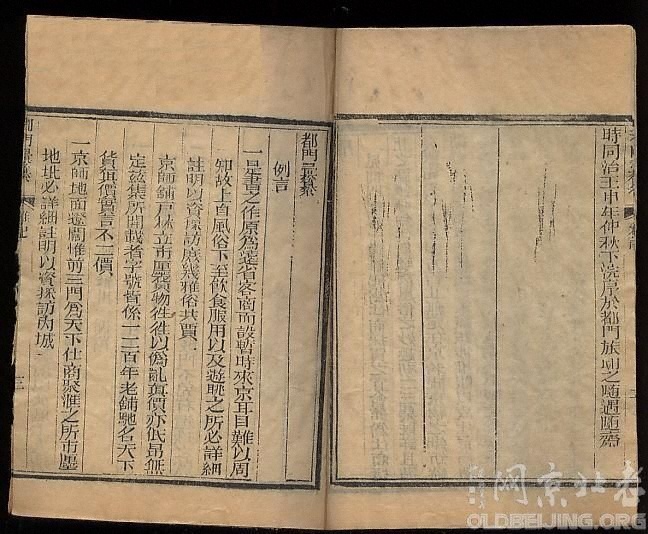 時同治壬申年仲秋下浣序於都門旅邸之隨遇隨齋
都門彙纂
例言
一是書之作原為遠省客商而設暫時來京耳目難以周
知故上自風俗下至飲食服用以及遊眺之所必詳細
註明以資採訪庶幾雅俗共賈
京師舖戶林立市廛貨物往往以偽亂真價亦低昂無
定茲集所開載者字號皆係一二百年老舖馳名天下
貨值價實言不二價
一京師地面遼闊惟前三門為天下仕商聚滙之所市廛
地址必詳細註明以資採訪內城
三
网京北老
OLDBEIJING.ORG